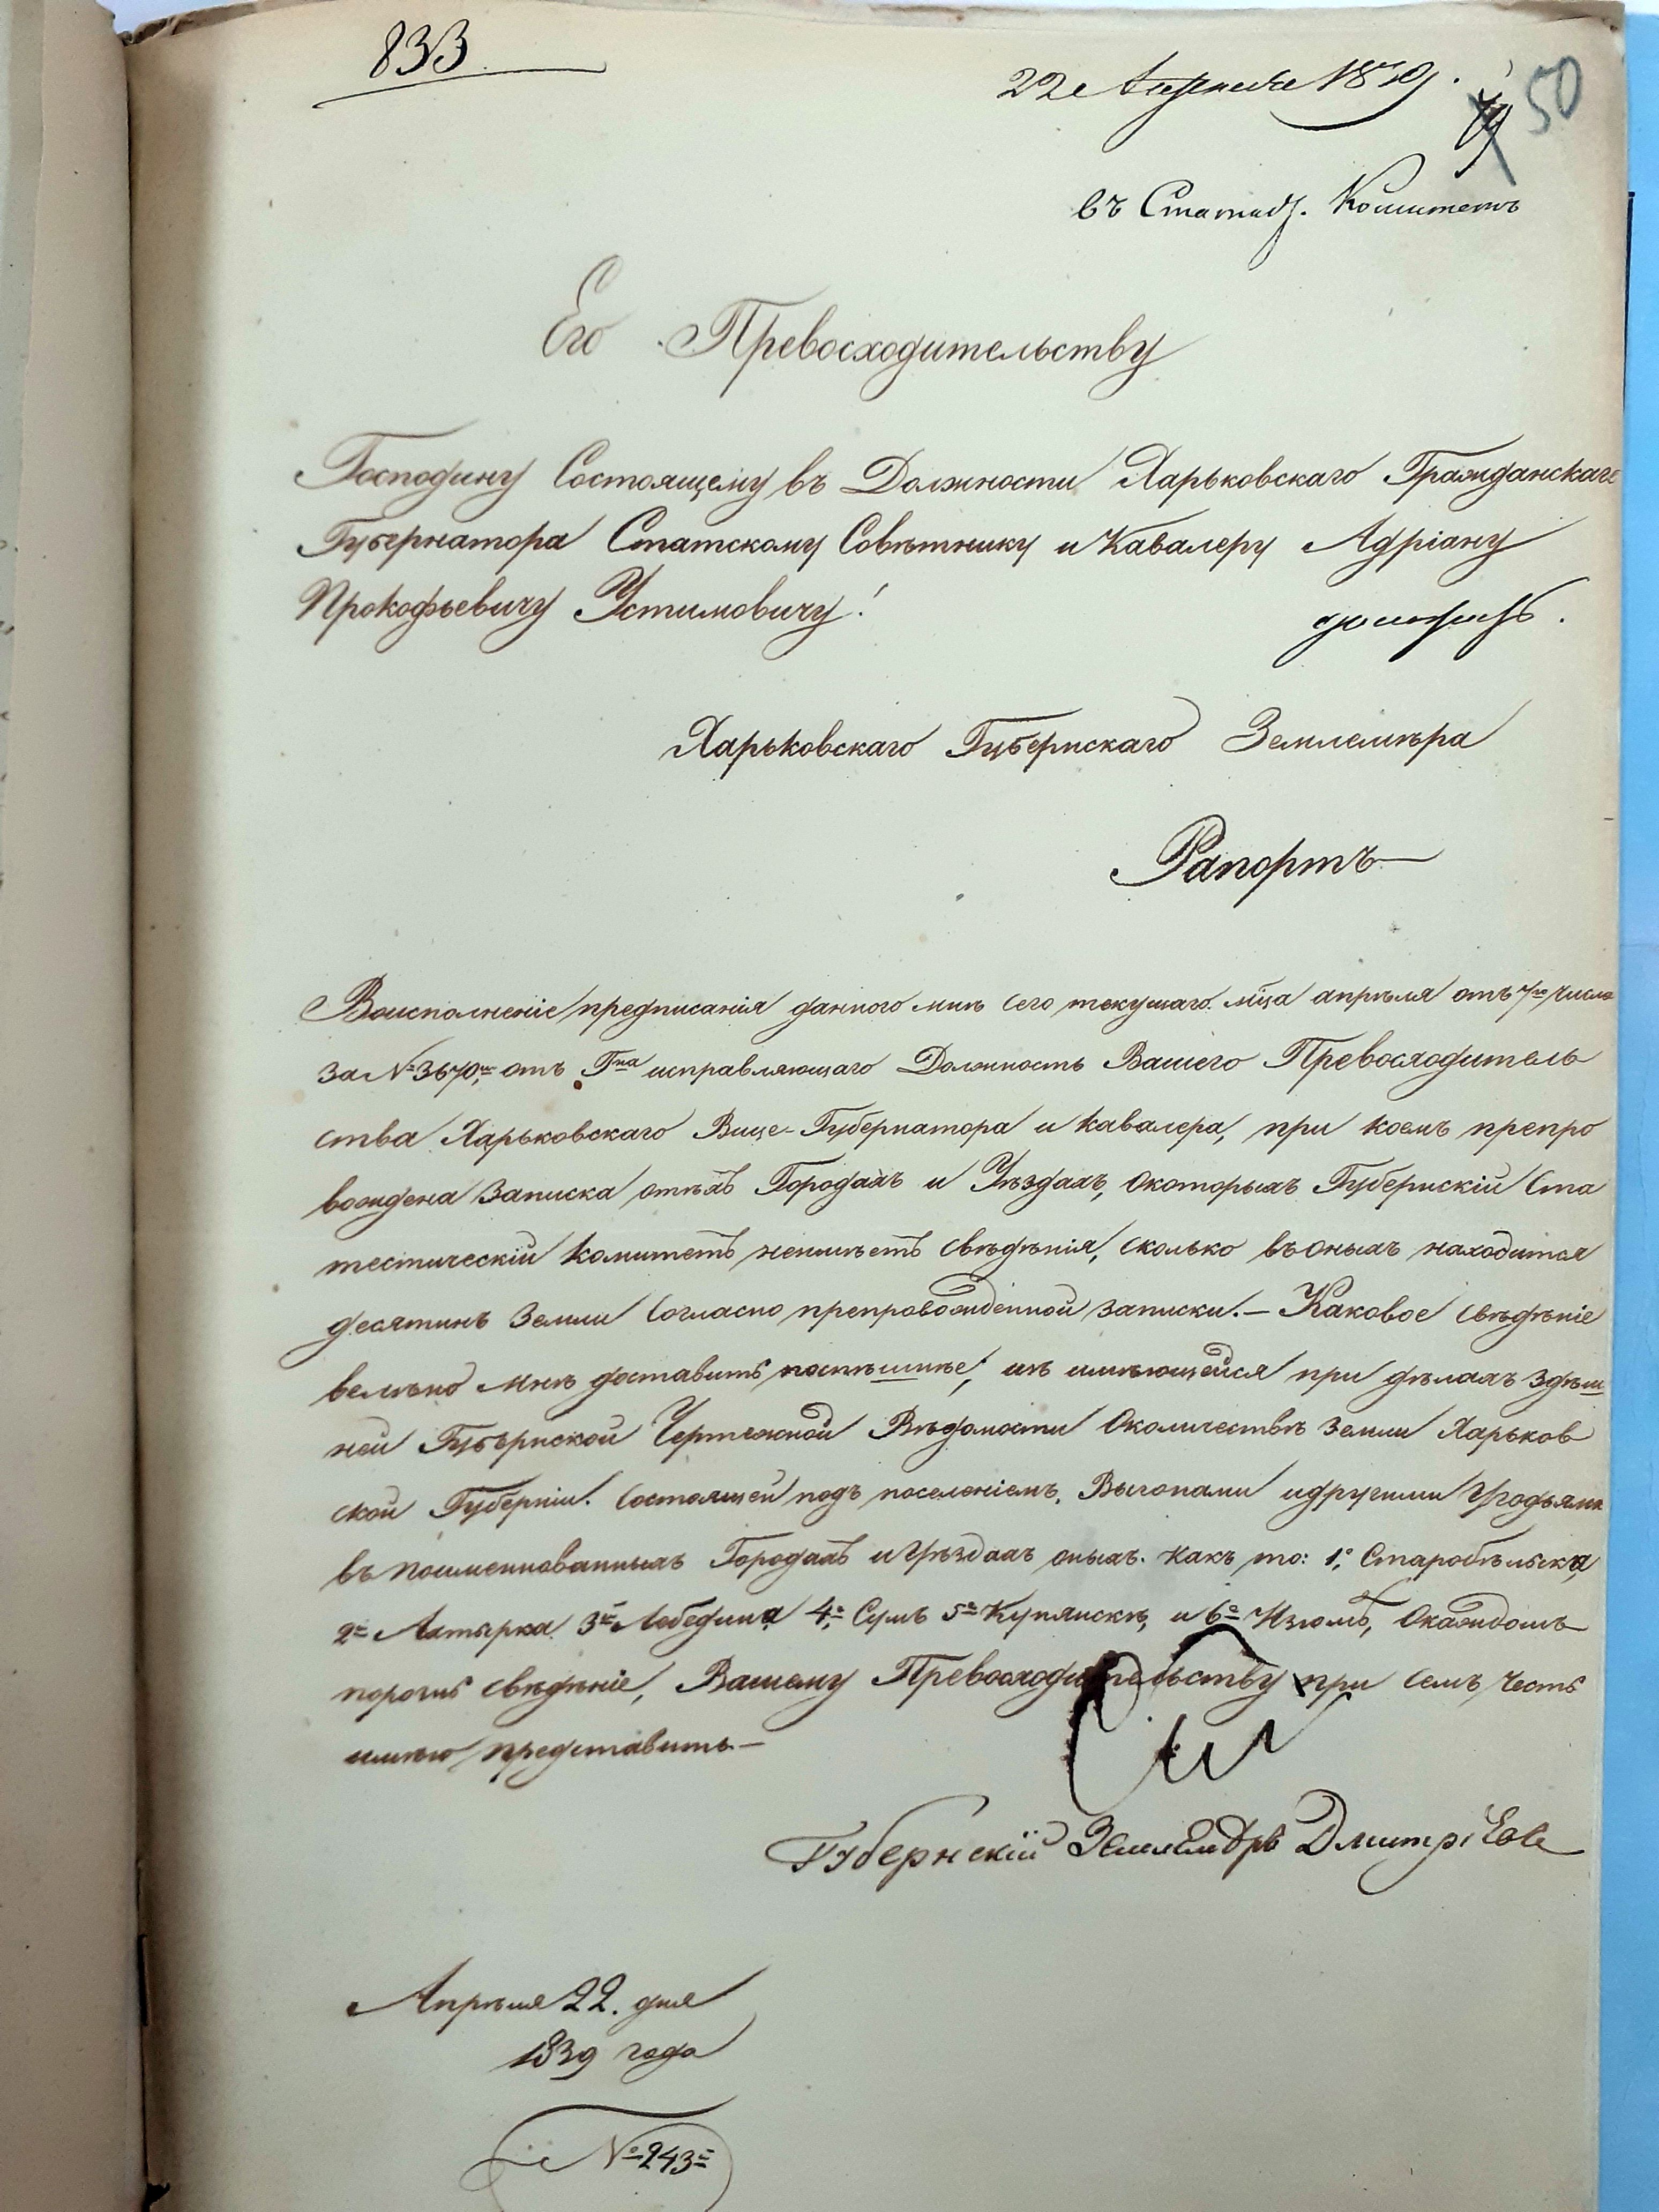 833
22 Апреля 1839.
50
въ Статист. Комитетъ
Его Превосходительству
Господину Состоящему въ Должности Харьковскаго Гражданскаго
Губернатора Статскому Совѣтнику и Кавалеру Адріану
Прокофьевичу Устимовичу!
Харьковскаго Губернскаго Землемѣра
Рапортъ
Воисполненіе предписанія данного мнѣ сего текущаго мца апрѣля отъ 7го числа
за № 3670м, отъ Гна исправляющаго Должность Вашего Превосходитель
ства Харьковскаго Вице-Губернатора и кавалера, при коемъ препро
вождена Записка отѣхъ Городахъ и Уѣздахъ, окоторыхъ Губернскій Ста
тестическій комитетъ неимѣетъ свѣдѣнія, сколько въоныхъ находится
десятинъ Земли согласно препровожденной записки.— Каковое свѣдѣніе
велѣно мнѣ доставить поспѣшнѣе; изъ имѣющейся при дѣлахъ здѣш
ней Губѣрнской Чертежной Вѣдомости Околичествѣ Земли Харьков
ской Губерніи. Состоящей подъ поселеніемъ, Выгонами идругими Угодьями
въ поименнованныхъ Городахъ иУѣздахъ оныхъ. какъ то: 1е Старобѣльска,
2е Ахтырка 3е Лебедина 4е Сумъ 5е Купянскѣ, и 6е Изюмъ, Окаждомъ
порознь свѣдѣніе, Вашему Превосходительству при семъ честь
имѣю представить.—
Губернскій Землемѣръ Дмитріевъ
Апрѣля 22. дня
1839 года
№ 243